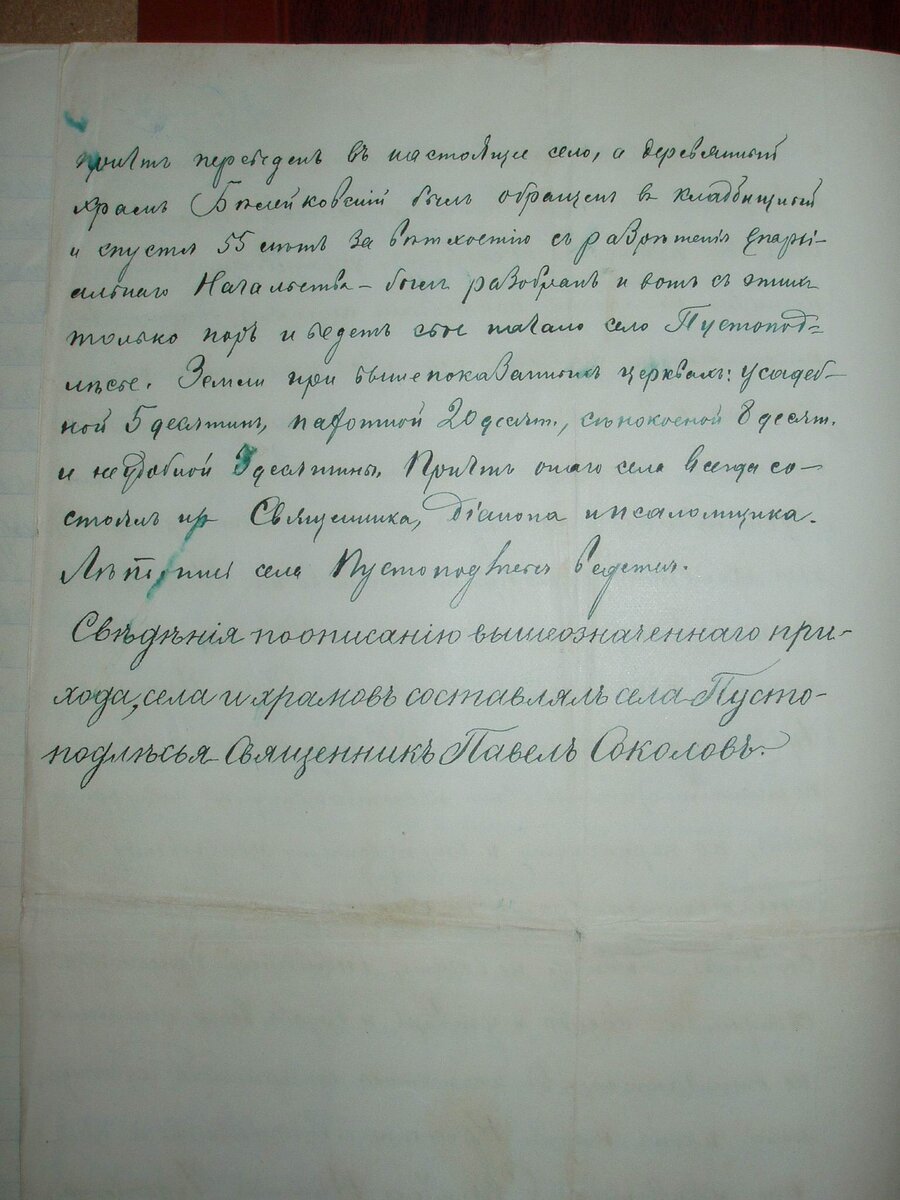 причтъ переведенъ въ настоящее село, а деревянный
храмъ Бѣлейковскій былъ обращенъ в кладбищный
и спустя 55 лѣтъ за вѣтхостію съ разрѣшенія Епархі-
альнаго Начальства – былъ разобранъ и вотъ съ этихъ
только поръ и ведетъ свое начало село Пустопод-
лѣсье. Земли при вышепоказанныхъ церквахъ: усадеб-
ной 5 десятинъ, пахотной 20 десят., сѣнокосной 8 десят.
и неудобной 3 десятины. Причтъ онаго села всегда со-
стоялъ изъ Священника, Діакона и псаломщика.
Лѣтописи села Пустоподлѣсья ведется.
Свѣдѣнія по описанію вышеозначеннаго при-
хода, села и храмовъ составлялъ села Пусто-
подлѣсья Священникъ Павелъ Соколовъ.